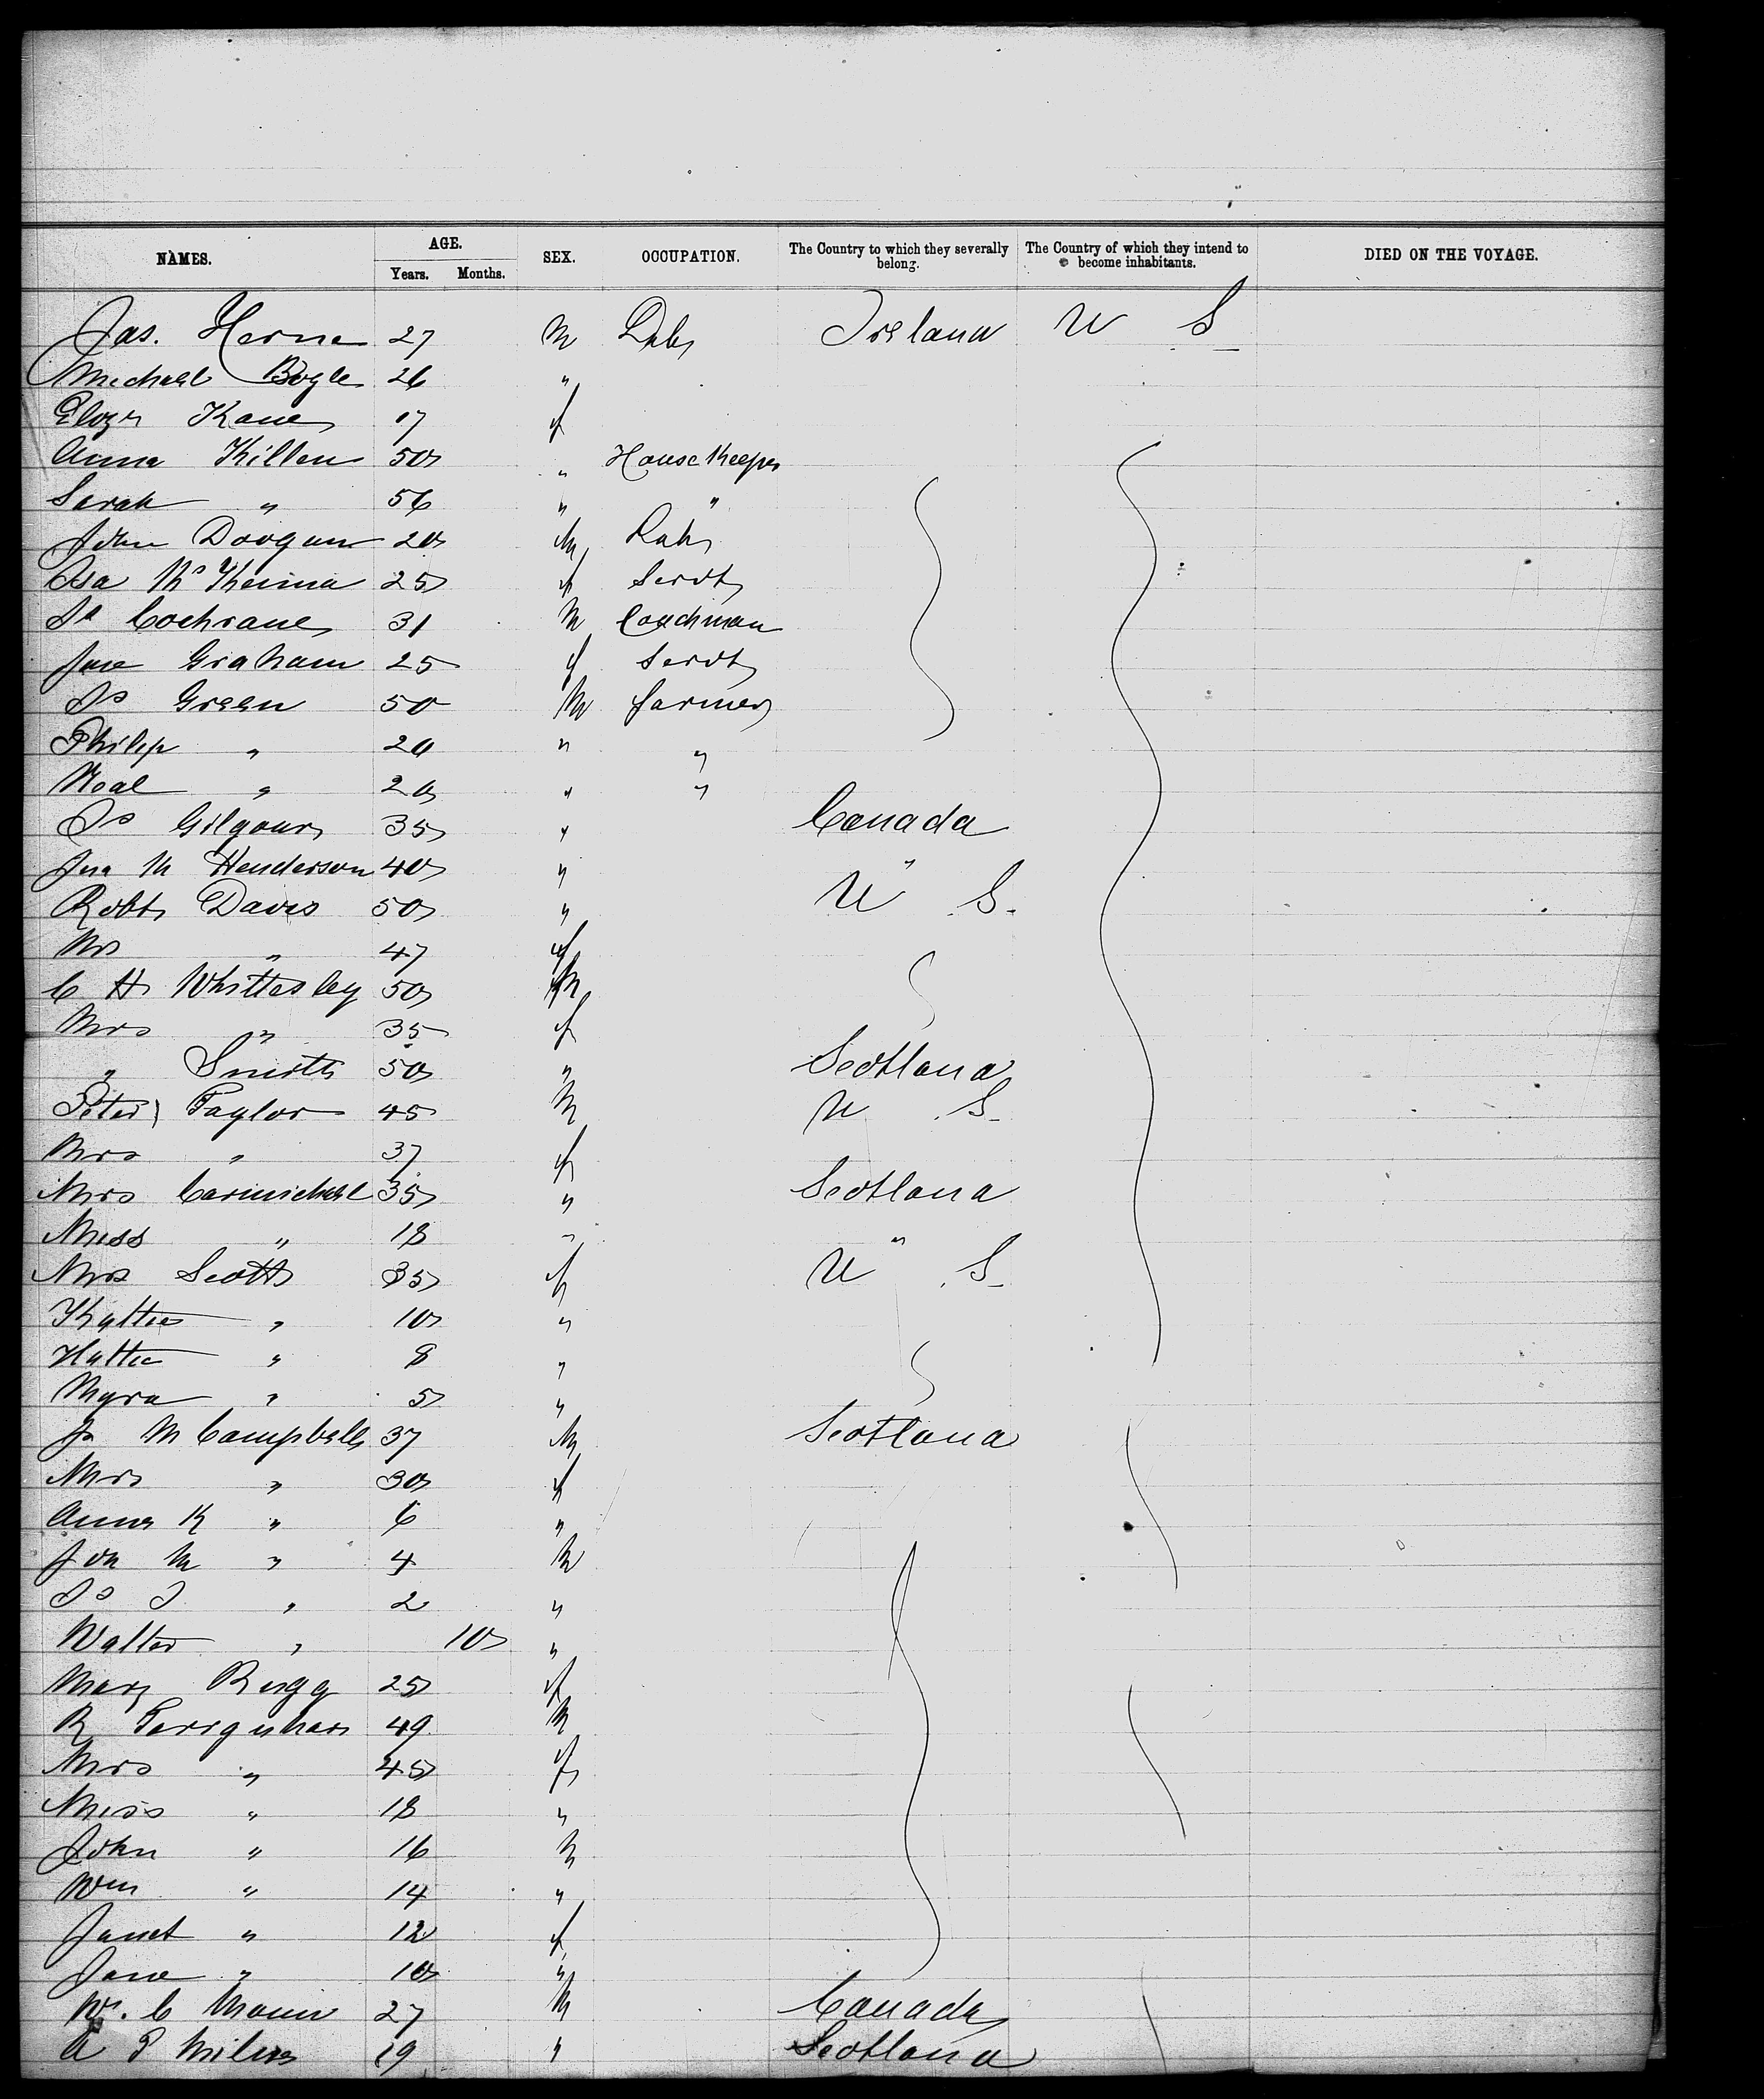 NAMES. AGE. SEX. OCCUPATION. The Country to which they severally belong. The Country of which they intend to become inhabitants. DIED ON THE VOYAGE.
Years. Months.
Jas. Herne 27 M Lab Ireland U S
Michael Bogle 26 "
Eliza Kane 17 f
Anna Killen 50 " House Keeper
Sarah " 56 " "
John Doogan 20 M Lab
Isa McKenna 25 f Servt
Js Cochrane 31 M Coachman
Jane Graham 25 f Servt
Js Green 50 M farmer
Philip " 20 " "
Neal " 20 " "
Js Gilgour 35 " Canada
Jno M Henderson 40 " "
Robt Davis 50 " U S.
Mrs " 47 f
C H Whittesley 50 M
Mrs " 35 f
" Smith 50 " Scotland
Peter Taylor 45 M U S
Mrs " 37 f
Mrs Carmichael 35 " Scotland
Miss " 18 " "
Mrs Scott 35 f U S
Kattie " 10 "
Hattie " 8 "
Myra " 5 "
Js M Campbell 37 M Scotland
Mrs " 30 f
Anna K " 6 "
Jon M " 4 M
Js J " 2 "
Walter " 10 "
Mary Rugg 25 f
R Farrquhar 49 M
Mrs " 45 f
Miss " 18 "
John " 16 M
Wm " 14 "
Janet " 12 f
Jane " 10 "
W. C 27 M Canada
A P Milne 19 " Scotland